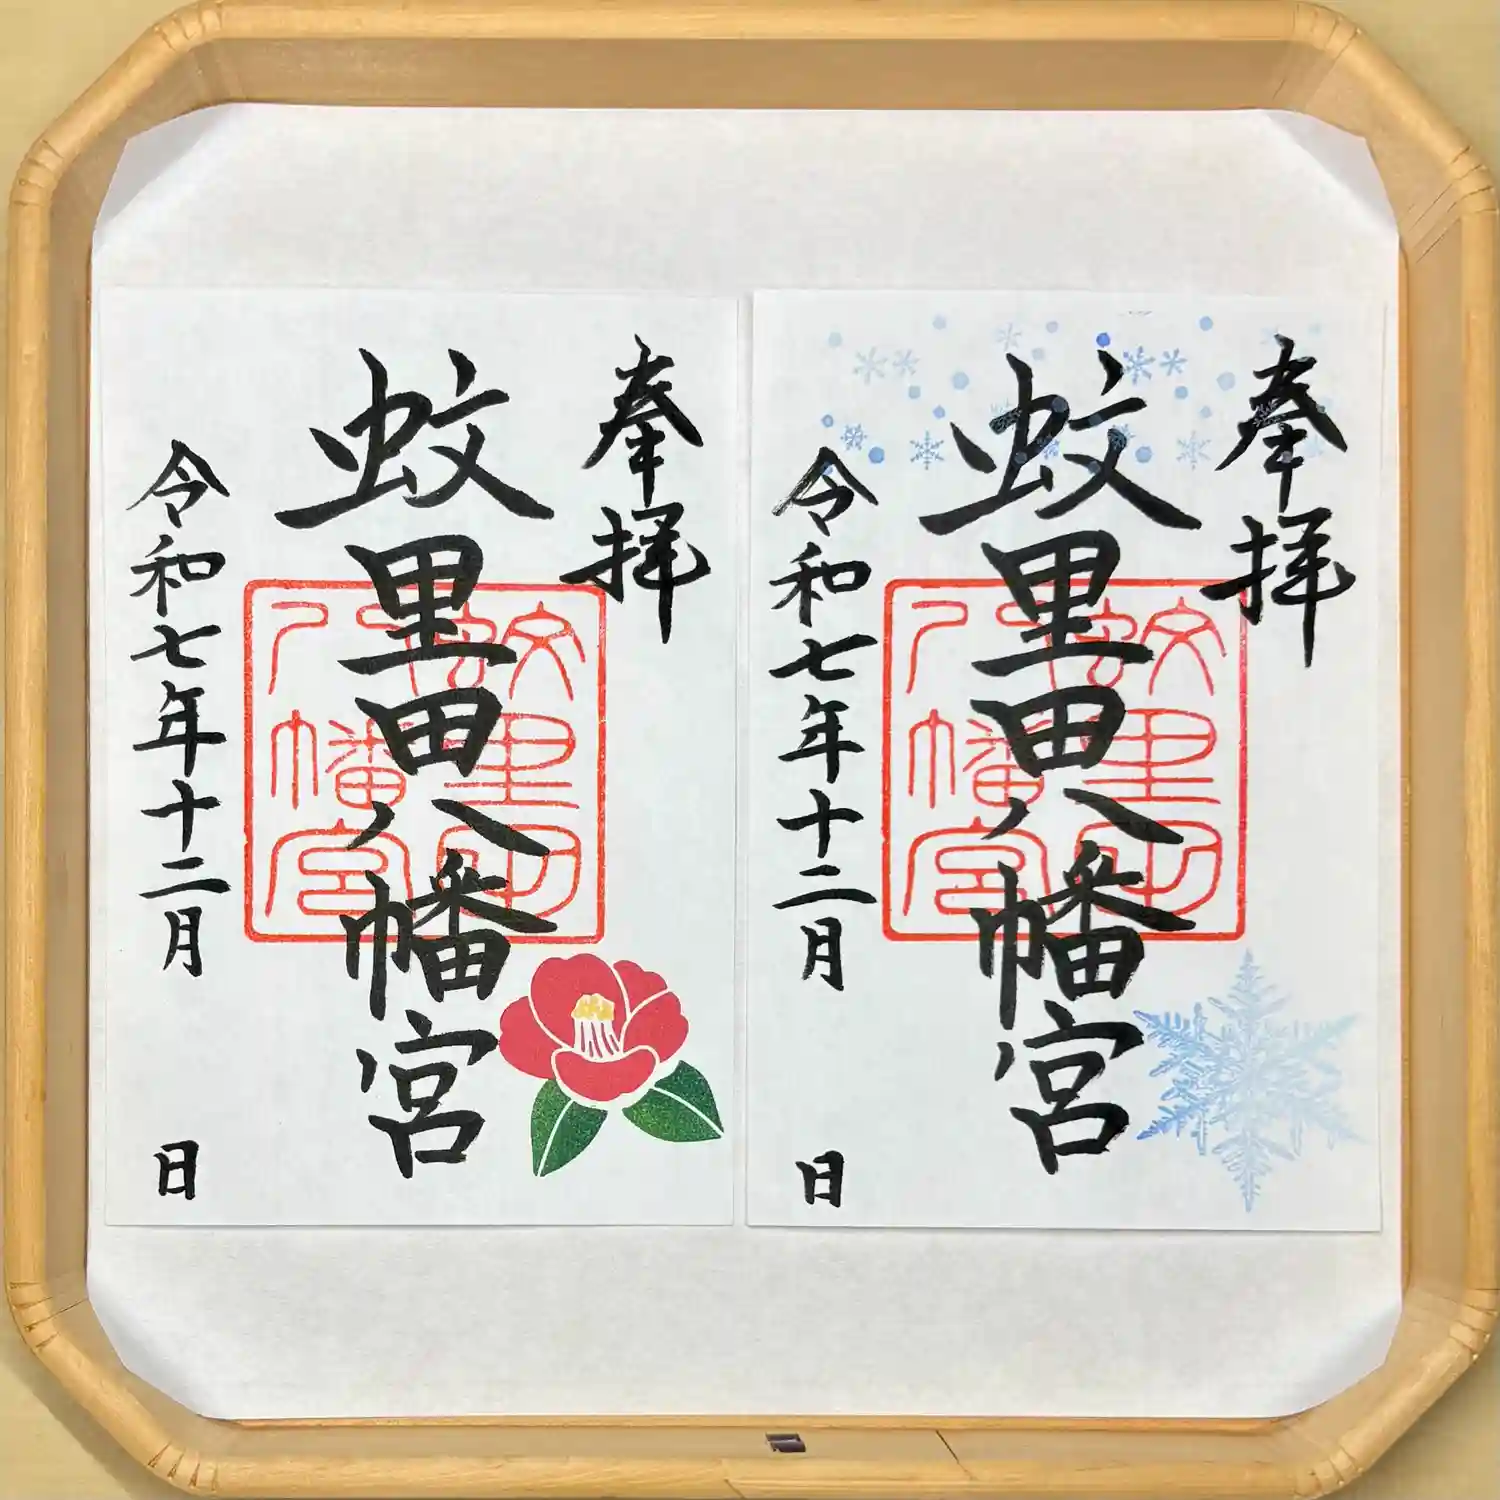 奉拝
蚊里田八幡宮
令和七年十二月 日
蚊里田
八幡宮
奉拝
蚊里田八幡宮
令和七年十二月 日
蚊里田
八幡宮